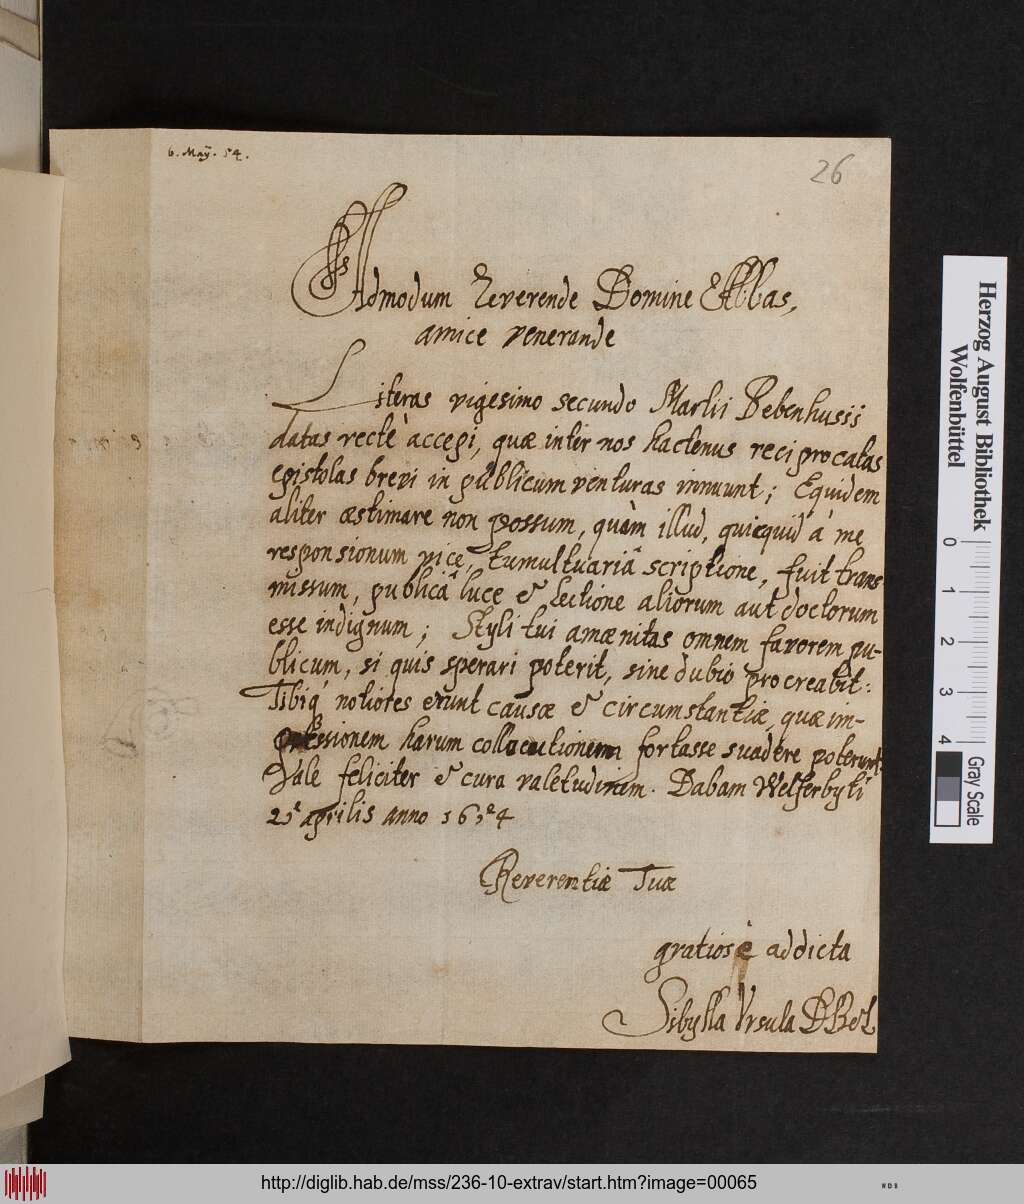 6. Maÿ. 54.
26
Admodum Reverende Domine Abbas,
amice venerande
Literas vigesimo secundo Martii Bebenhusii
datas rectè accepi, quæ inter nos hactenus reciprocatas
epistolas brevi in publicum venturas innuunt; Equidem
aliter æstimare non possum, quàm illud, quicquid à me
responsionum vice, tumultuariâ scriptione, fuit trans
missum, publicâ luce & lectione aliorum aut doctorum
esse indignum; Styli tui amœnitas omnem favorem pu-
blicum, si quis sperari poterit, sine dubio procreabit:
Tibiq́ notiores erunt causæ & circumstantiæ, quæ im-
pressionem harum collocutionem fortasse suadere poterunt.
Vale feliciter & cura valetudinem. Dabam Welferbyti
aprilis anno 1654
Reverentiæ Tuæ
gratiosè addicta
Sibylla Ursula
Herzog August Bibliothek
Wolfenbüttel
0 1 2 3 4
Gray Scale
http://diglib.hab.de/mss/236-10-extrav/start.htm?image=00065